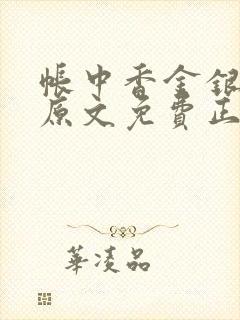 帳中香金銀
原文免費正
華凌品